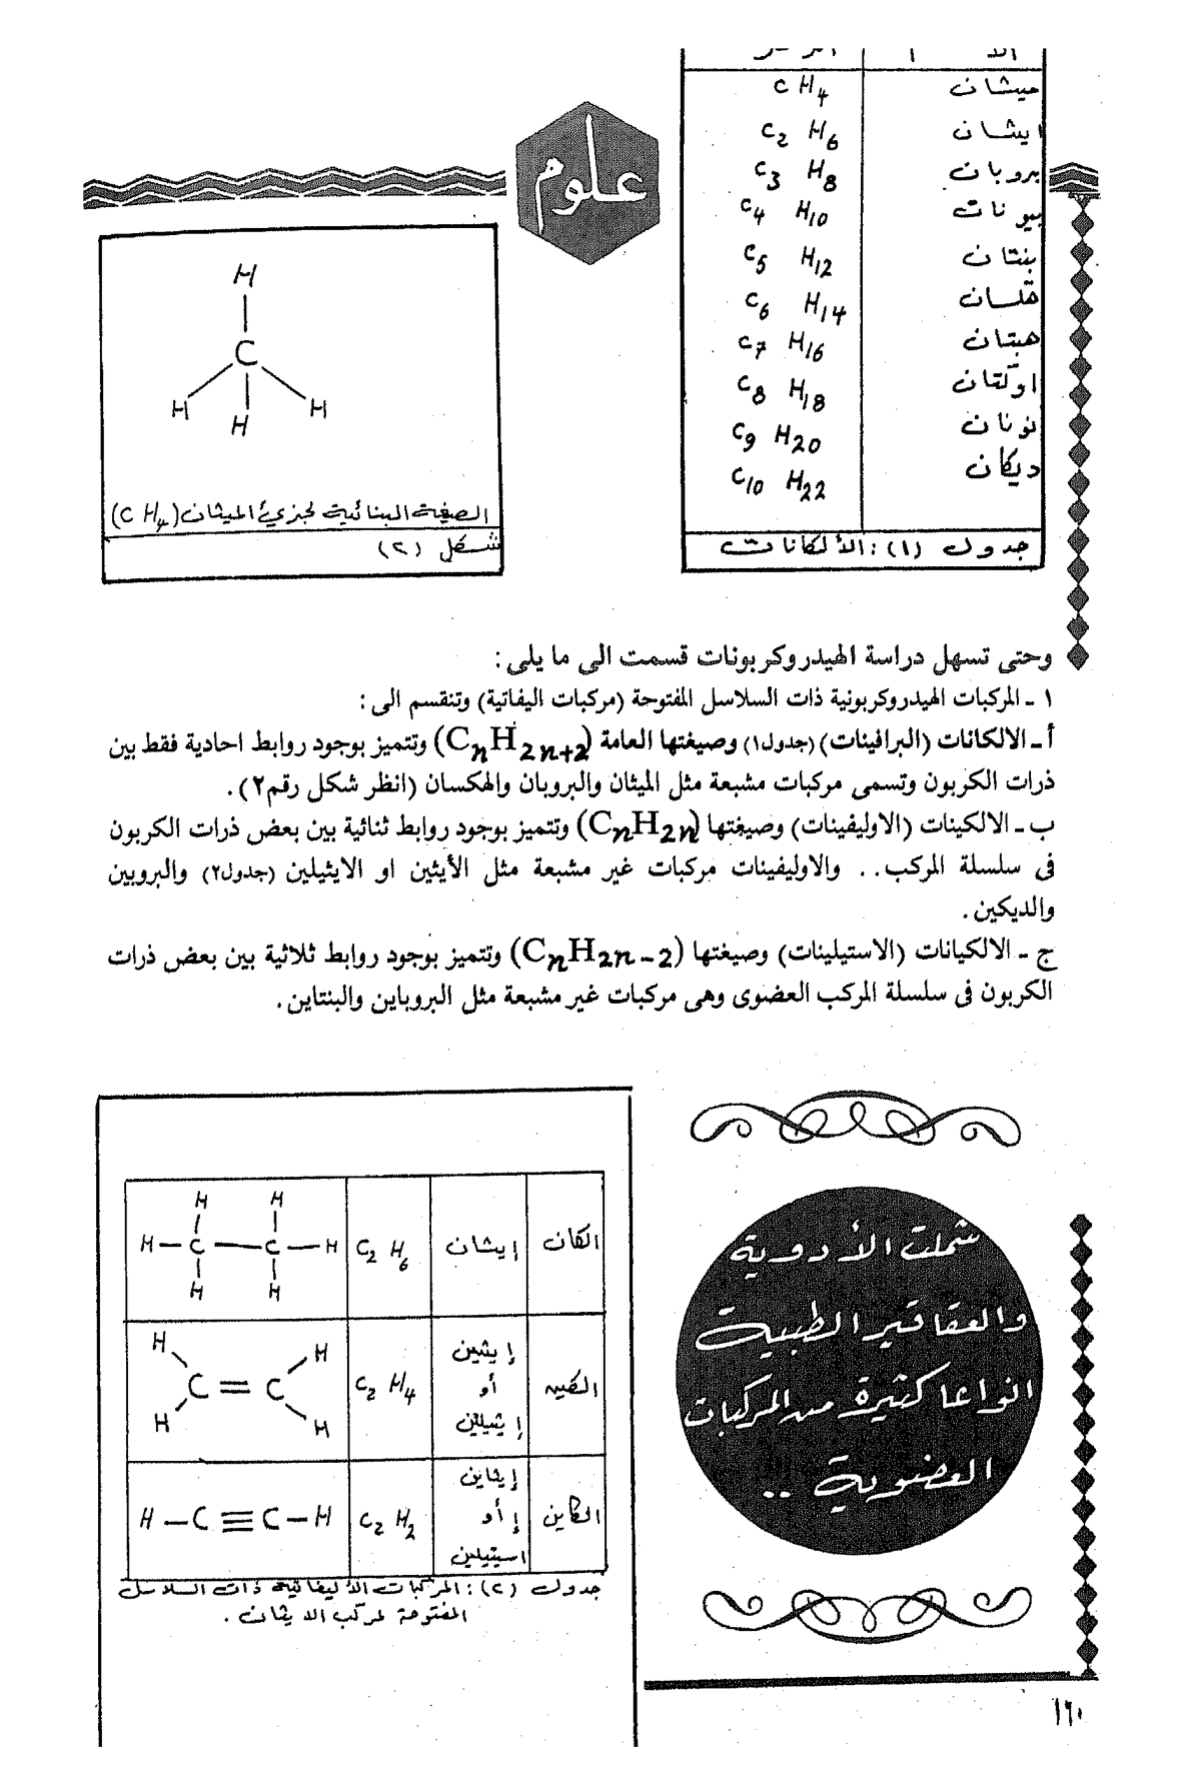 علوم
ميثان CH4
ايثان C2 H6
بروبان C3 H8
بيوتان C4 H10
بنتان C5 H12
هكسان C6 H14
هبتان C7 H16
اوكتان C8 H18
نونان C9 H20
ديكان C10 H22
جدول (١): الألكانات
H
C
H H H
الصيغة البنائية لجزيء الميثان (CH4)
شكل (٢)
وحتى تسهل دراسة الهيدروكربونات قسمت الى ما يلى:
١ ـ المركبات الهيدروكربونية ذات السلاسل المفتوحة (مركبات اليفاتية) وتنقسم الى:
أ ـ الالكانات (البرافينات) (جدول١) وصيغتها العامة (CnH2n+2) وتتميز بوجود روابط احادية فقط بين
ذرات الكربون وتسمى مركبات مشبعة مثل الميثان والبروبان والهكسان (انظر شكل رقم٢).
ب ـ الالكينات (الاوليفينات) وصيغتها (CnH2n) وتتميز بوجود روابط ثنائية بين بعض ذرات الكربون
فى سلسلة المركب.. والاوليفينات مركبات غير مشبعة مثل الأيثين او الايثيلين (جدول٢) والبروبين
والديكين.
ج ـ الالكيانات (الاستيلينات) وصيغتها (CnH2n-2) وتتميز بوجود روابط ثلاثية بين بعض ذرات
الكربون فى سلسلة المركب العضوى وهى مركبات غير مشبعة مثل البروباين والبنتاين.
شملت الأدوية
والعقاقير الطبية
انواعا كثيرة من المركبات
العضوية ..
الكان إيثان C2 H6
H H
H—C—C—H
H H
الكين إيثين أو إيثيلين C2 H4
H H
C=C
H H
الكاين إيثاين أو استيلين C2 H2
H—C≡C—H
جدول (٢): المركبات الأليفاتية ذات السلاسل
المفتوحة لمركب الايثان.
١٦٠